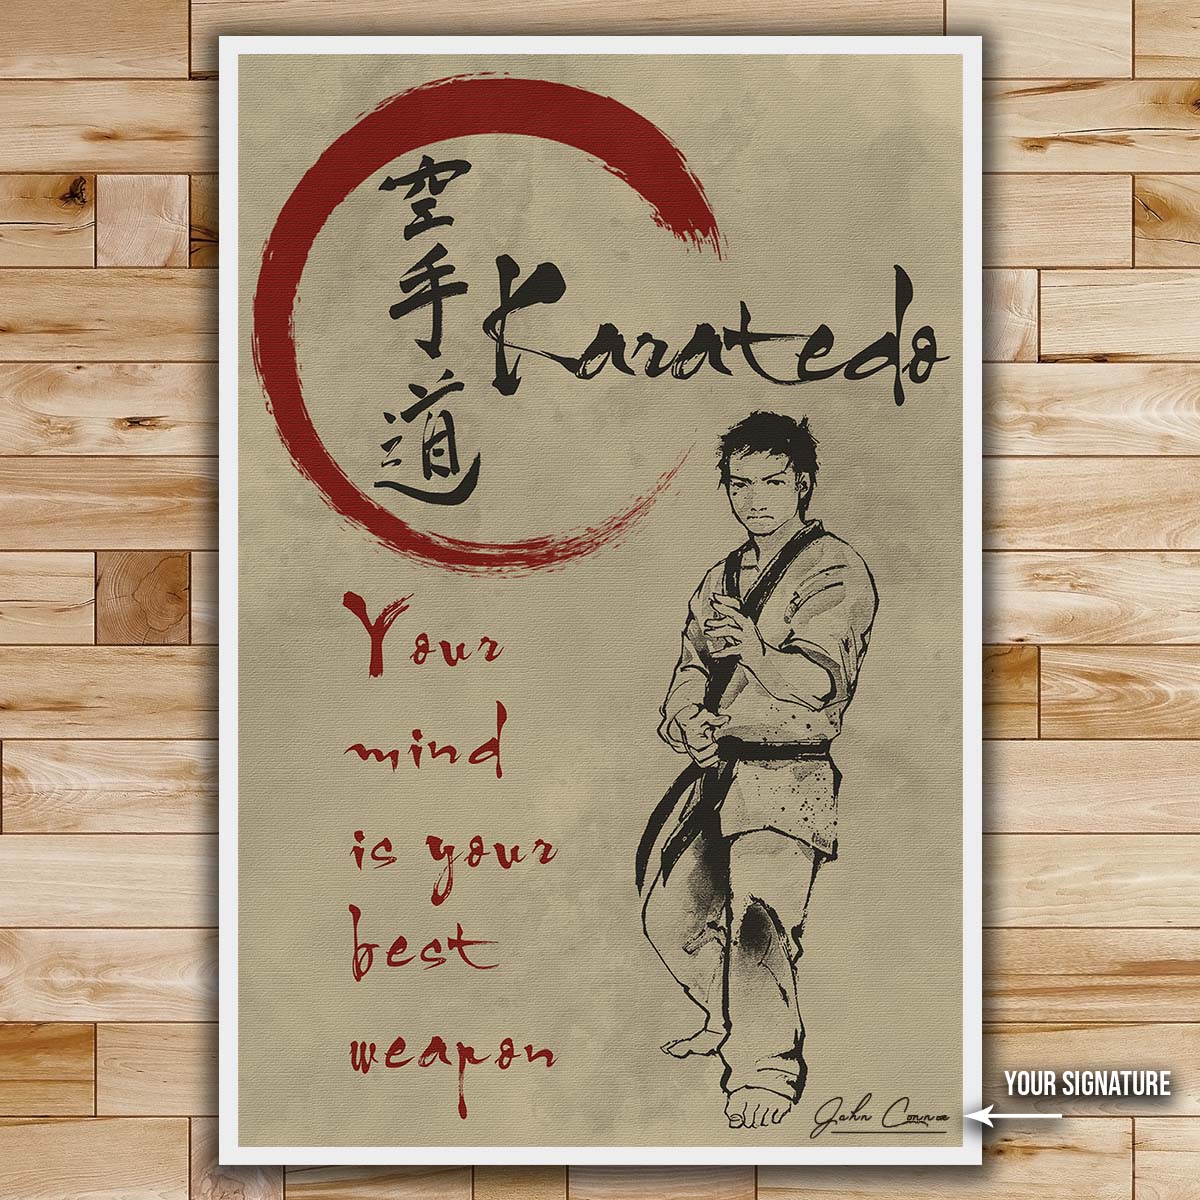 空手道
Karatedo
Your
mind
is your
best
weapon
John Connor
YOUR SIGNATURE